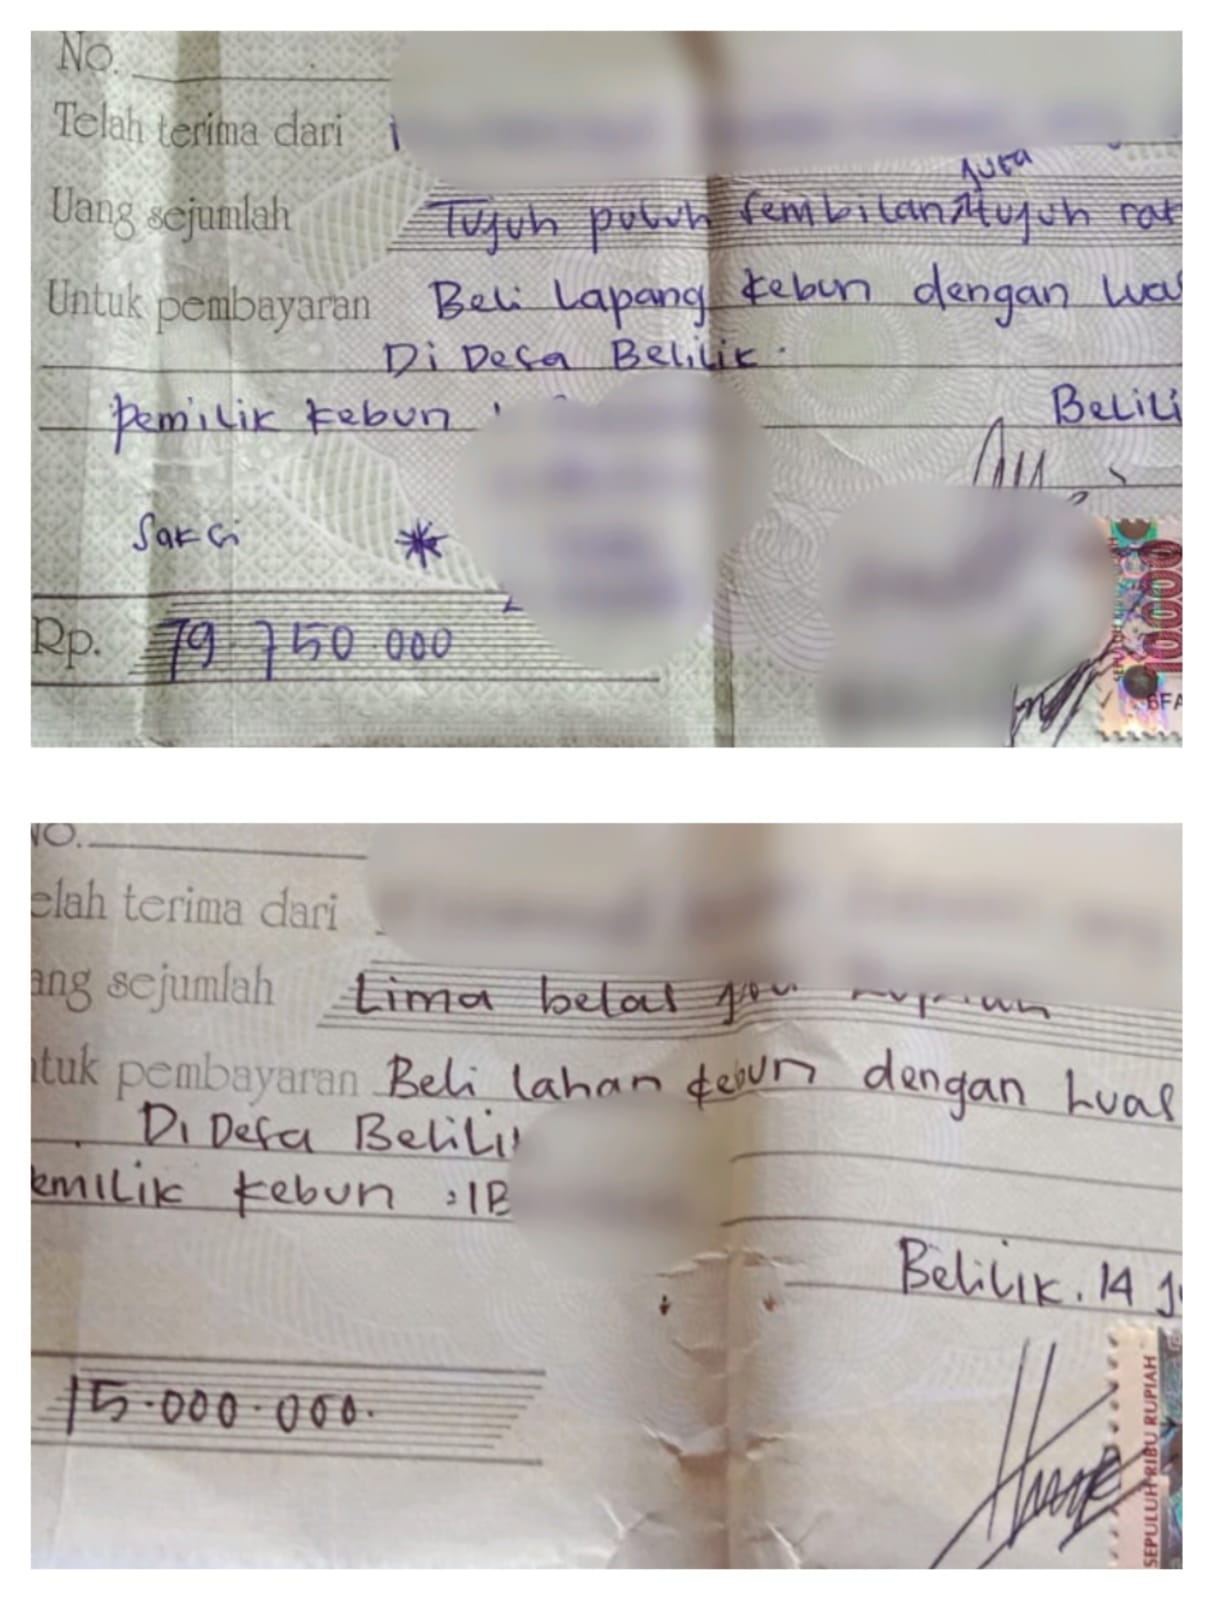 No.
Telah terima dari
juta
Uang sejumlah Tujuh puluh sembilan tujuh rat
Untuk pembayaran Beli Lapang kebun dengan Lua
Di Desa Belilik.
Pemilik kebun :
Belili
Saksi
Rp. 79.750.000
SEPULUH
10000
BFA
NO.
elah terima dari
ang sejumlah Lima belas
ntuk pembayaran Beli lahan kebun dengan Luas
Di Desa Belili
emilik kebun : IB
Belilik. 14 Ju
15.000.000.
SEPULUH RIBU RUPIAH